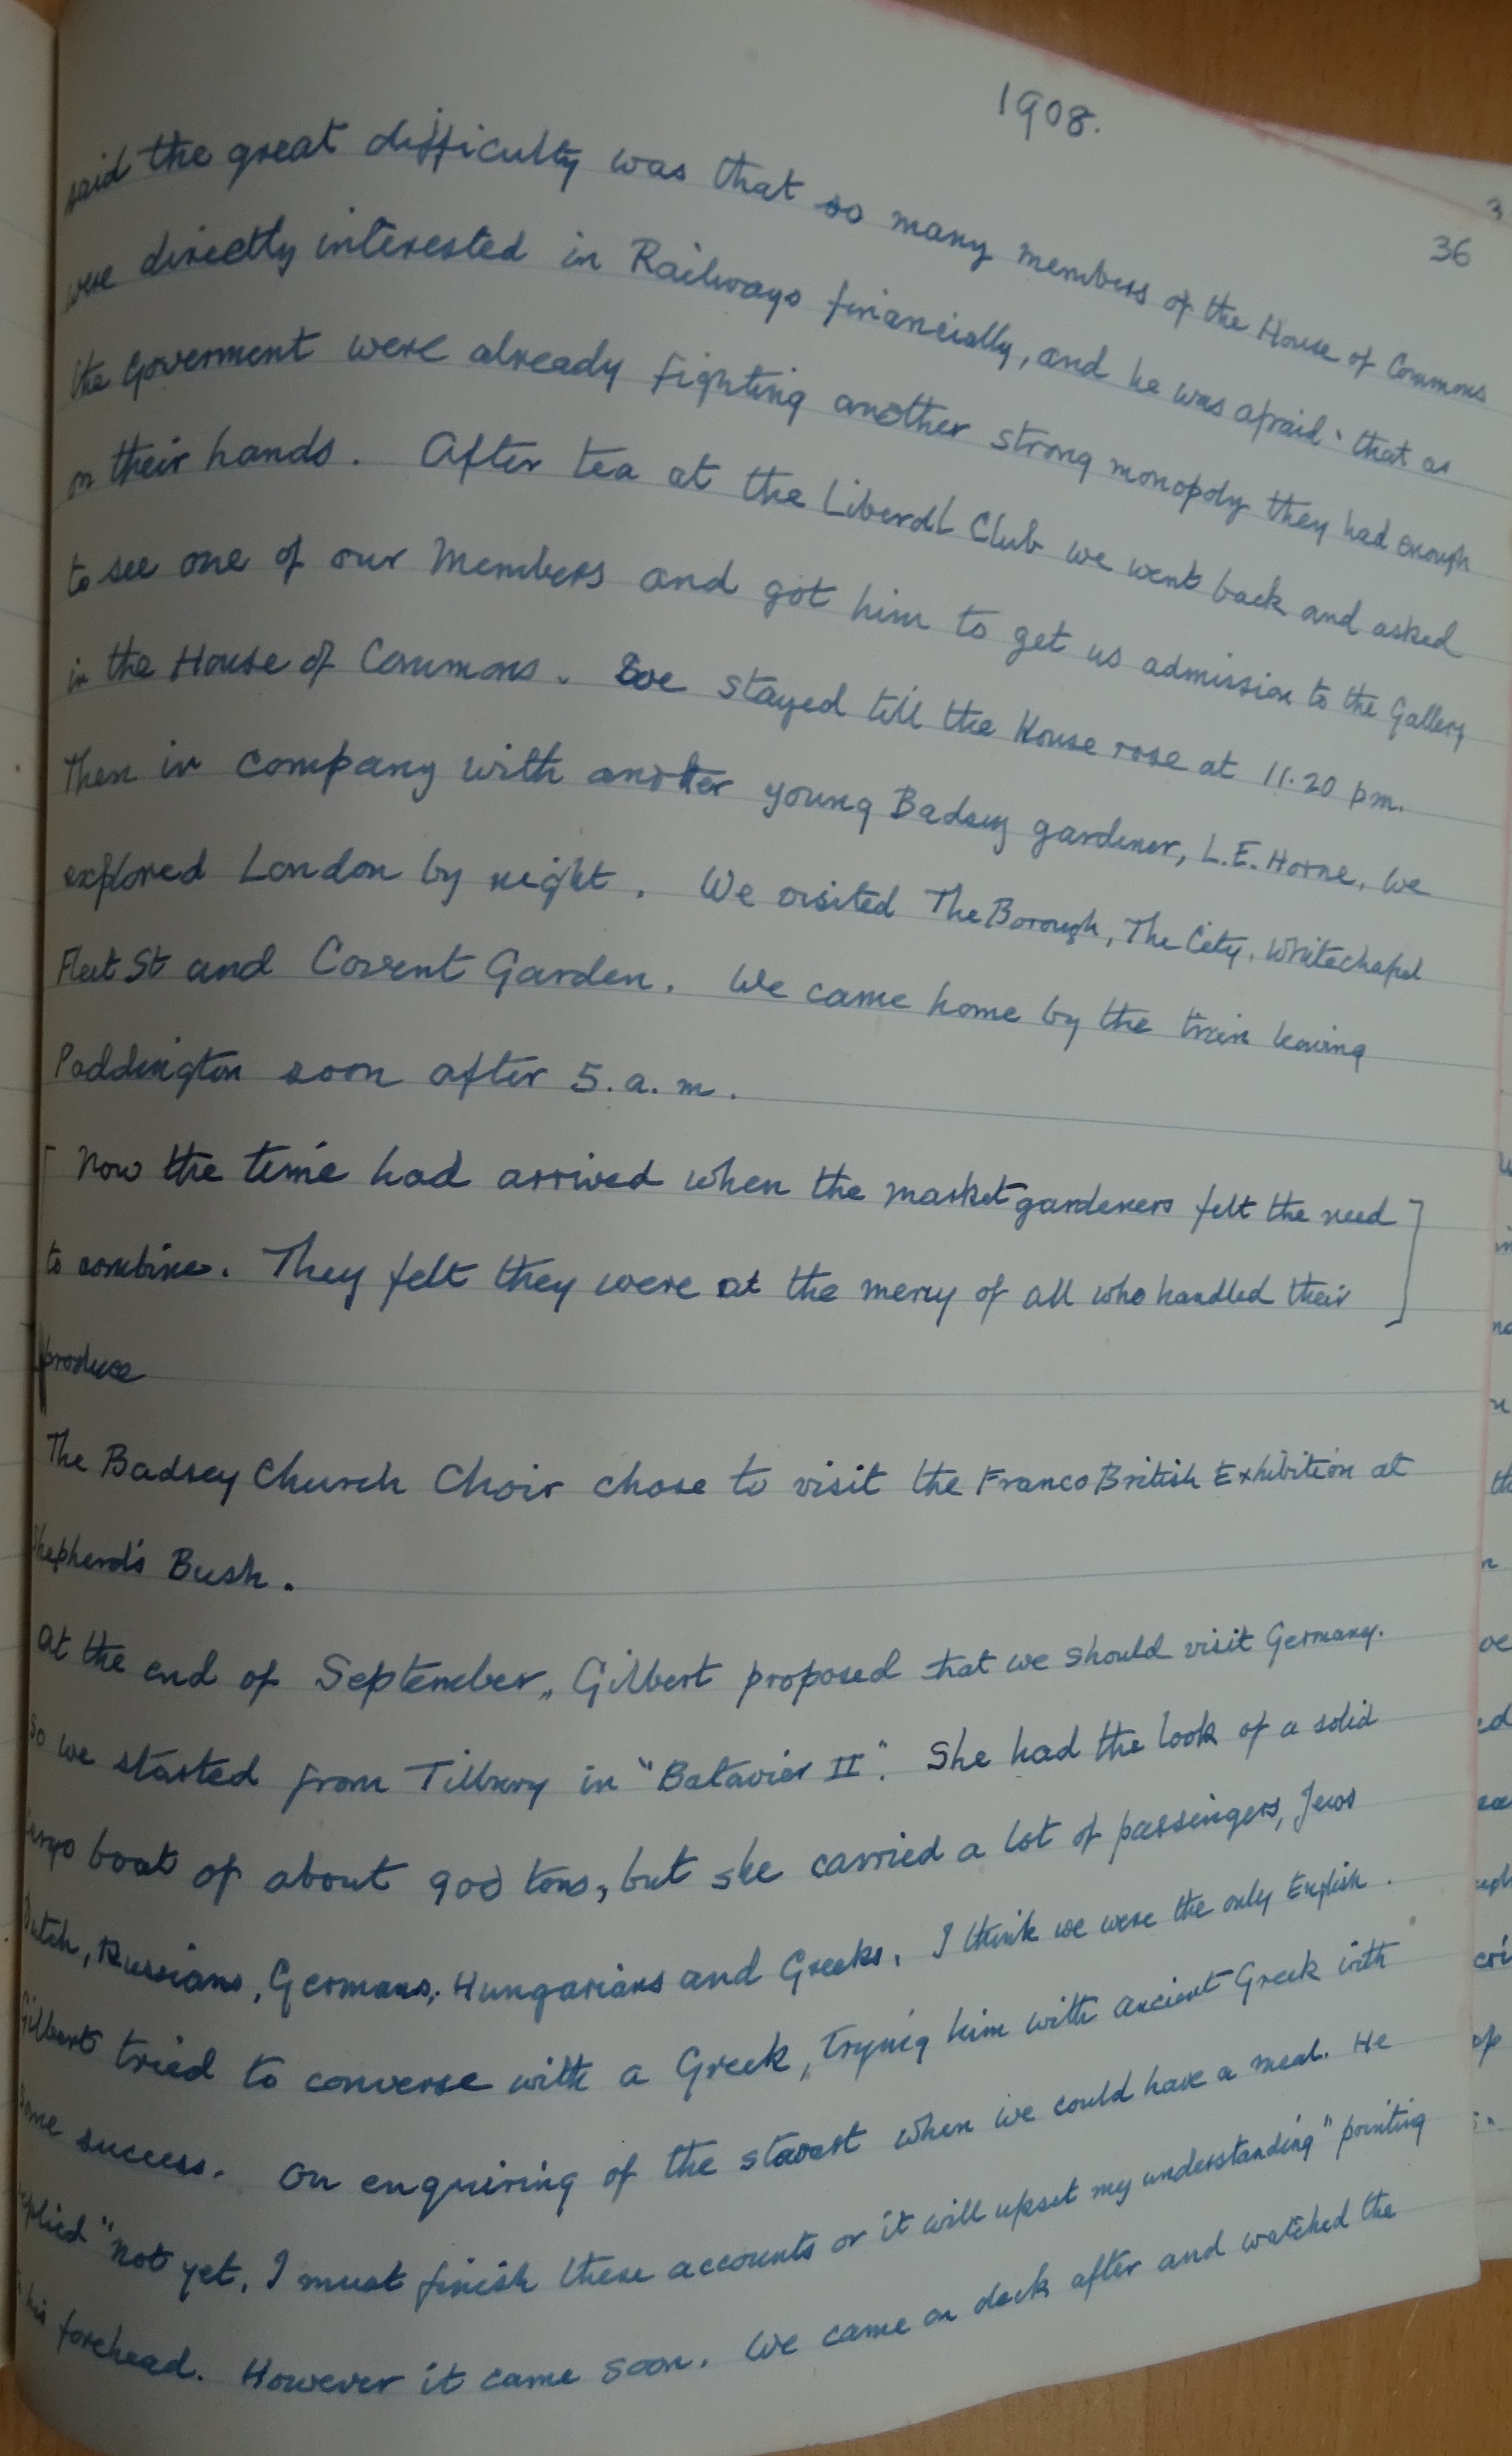 1908.
3
36
said the great difficulty was that so many members of the House of Commons
were directly interested in Railways financially, and he was afraid that as
the Goverment were already fighting another strong monopoly they had enough
on their hands. After tea at the Liberal Club we went back and asked
to see one of our Members and got him to get us admission to the Gallery
in the House of Commons. We stayed till the House rose at 11.20 pm.
Then in company with another young Badsey gardener, L.E. Horne, we
explored London by night. We visited The Borough, The City, Whitechapel
Fleet St and Covent Garden. We came home by the train leaving
Paddington soon after 5.a.m.
[ Now the time had arrived when the market gardeners felt the need ]
to combine. They felt they were at the mercy of all who handled their
produce
The Badsey Church Choir chose to visit the Franco British Exhibition at
Shepherd's Bush.
At the end of September, Gilbert proposed that we should visit Germany.
So we started from Tilbury in "Batavier II". She had the look of a solid
cargo boat of about 900 tons, but she carried a lot of passengers, Jews
Dutch, Russians, Germans, Hungarians and Greeks. I think we were the only English.
Gilbert tried to converse with a Greek, trying him with ancient Greek with
some success. On enquiring of the steward when we could have a meal. He
replied "not yet, I must finish these accounts or it will upset my understanding" pointing
his forehead. However it came soon. We came on deck after and watched the